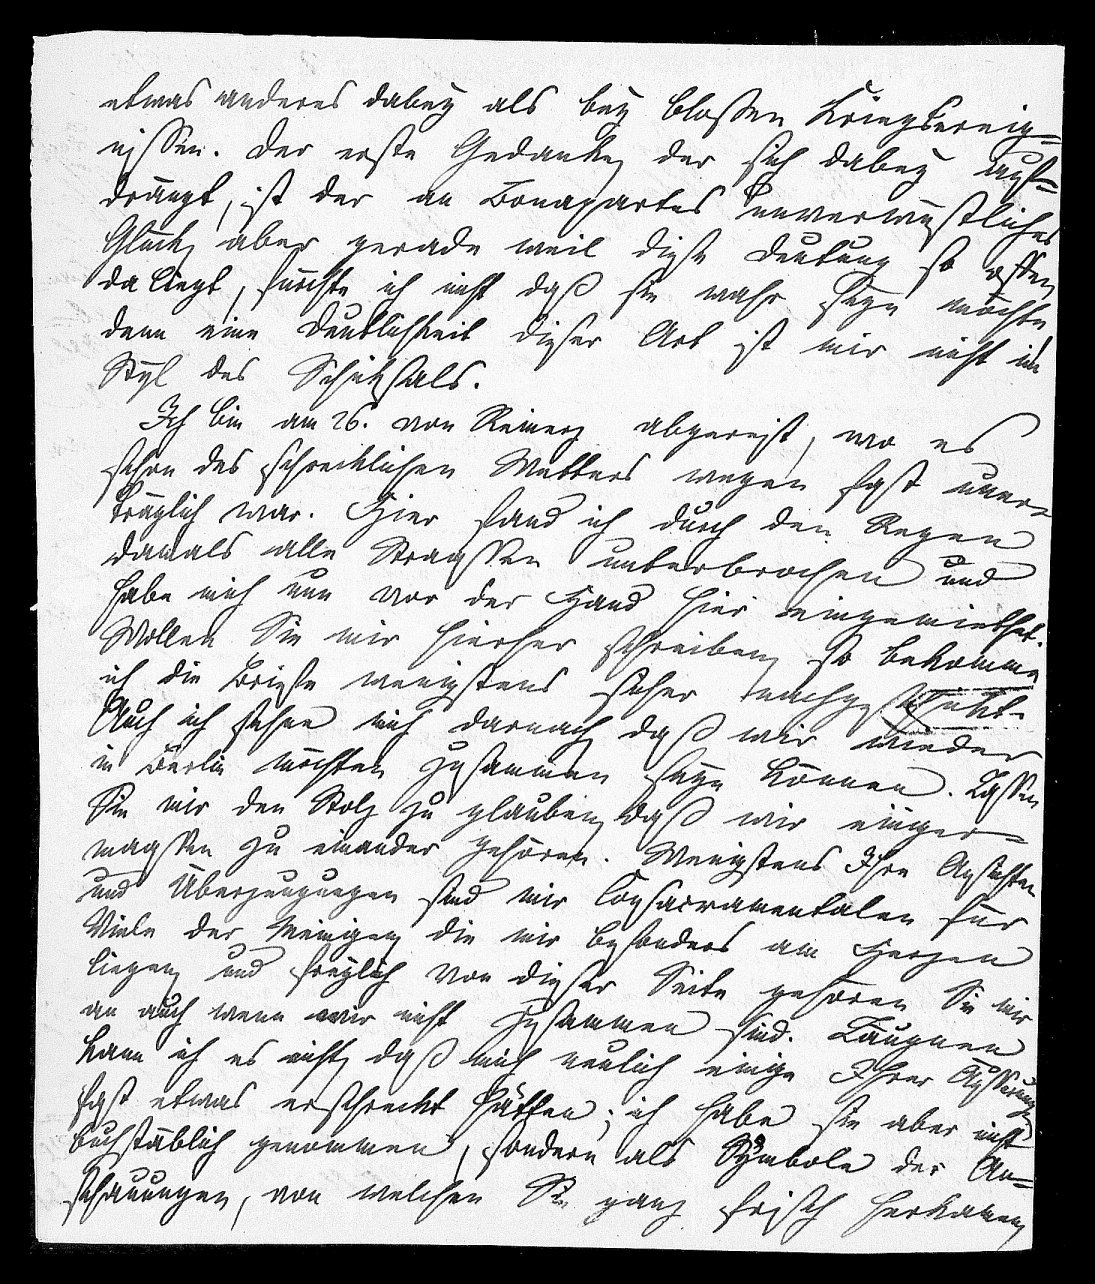 etwas anderes dabey als bey blossen Kriegsereig-
nissen. Der erste Gedanke, der sich dabey auf-
drängt, ist der an Bonapartes unverwüstliches
Glück, aber gerade weil diese Deutung so offen
da liegt, fürchte ich nicht daß sie wahr seyn möchte
denn eine Deutlichkeit dieser Art ist mir nicht im
Styl des Schicksals.
Ich bin am 26. von Reinerz abgereist, wo es
schon des schrecklichen Wetters wegen fast uner-
träglich war. Hier fand ich durch den Regen
damals alle Strassen unterbrochen und
habe mich nun vor der Hand hier eingemiethet.
Wollen Sie mir hierher schreiben, so bekomme
ich die Briefe wenigstens sicher nachgeschickt.
Auch ich sehne mich darnach, daß wir wieder
in Berlin möchten zusammen seyn können. Lassen
Sie mir den Stolz zu glauben, daß wir einiger-
massen zu einander gehören. Wenigstens Ihre Ansichten
und Überzeugungen sind mir Consacramentalen für
Viele der Meinigen, die mir besonders am Herzen
liegen, und freylich von dieser Seite gehören Sie mir
an auch wenn wir nicht zusammen sind. Läugnen
kann ich es nicht, daß mich neulich einige Ihrer Äusserungen
fast etwas erschreckt hätten; ich habe sie aber nicht
buchstäblich genommen, sondern als Symbole der An-
schauungen, von welchen Sie ganz frisch herkamen,